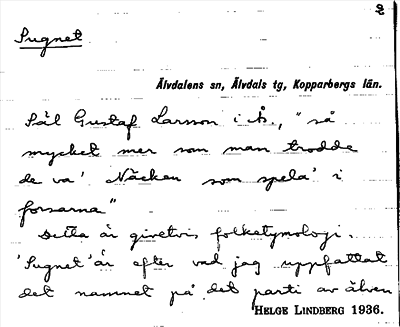 2
Sugnet
Älvdalens sn, Älvdals tg, Kopparbergs län.
Pål Gustaf Larsson i Å., "så
mycket mer som man trodde
de va' Näcken som spela' i
forsarna"
Detta är givetvis folketymologi.
'Sugnet' är efter vad jag uppfattat
det namnet på det parti av älven
HELGE LINDBERG 1936.